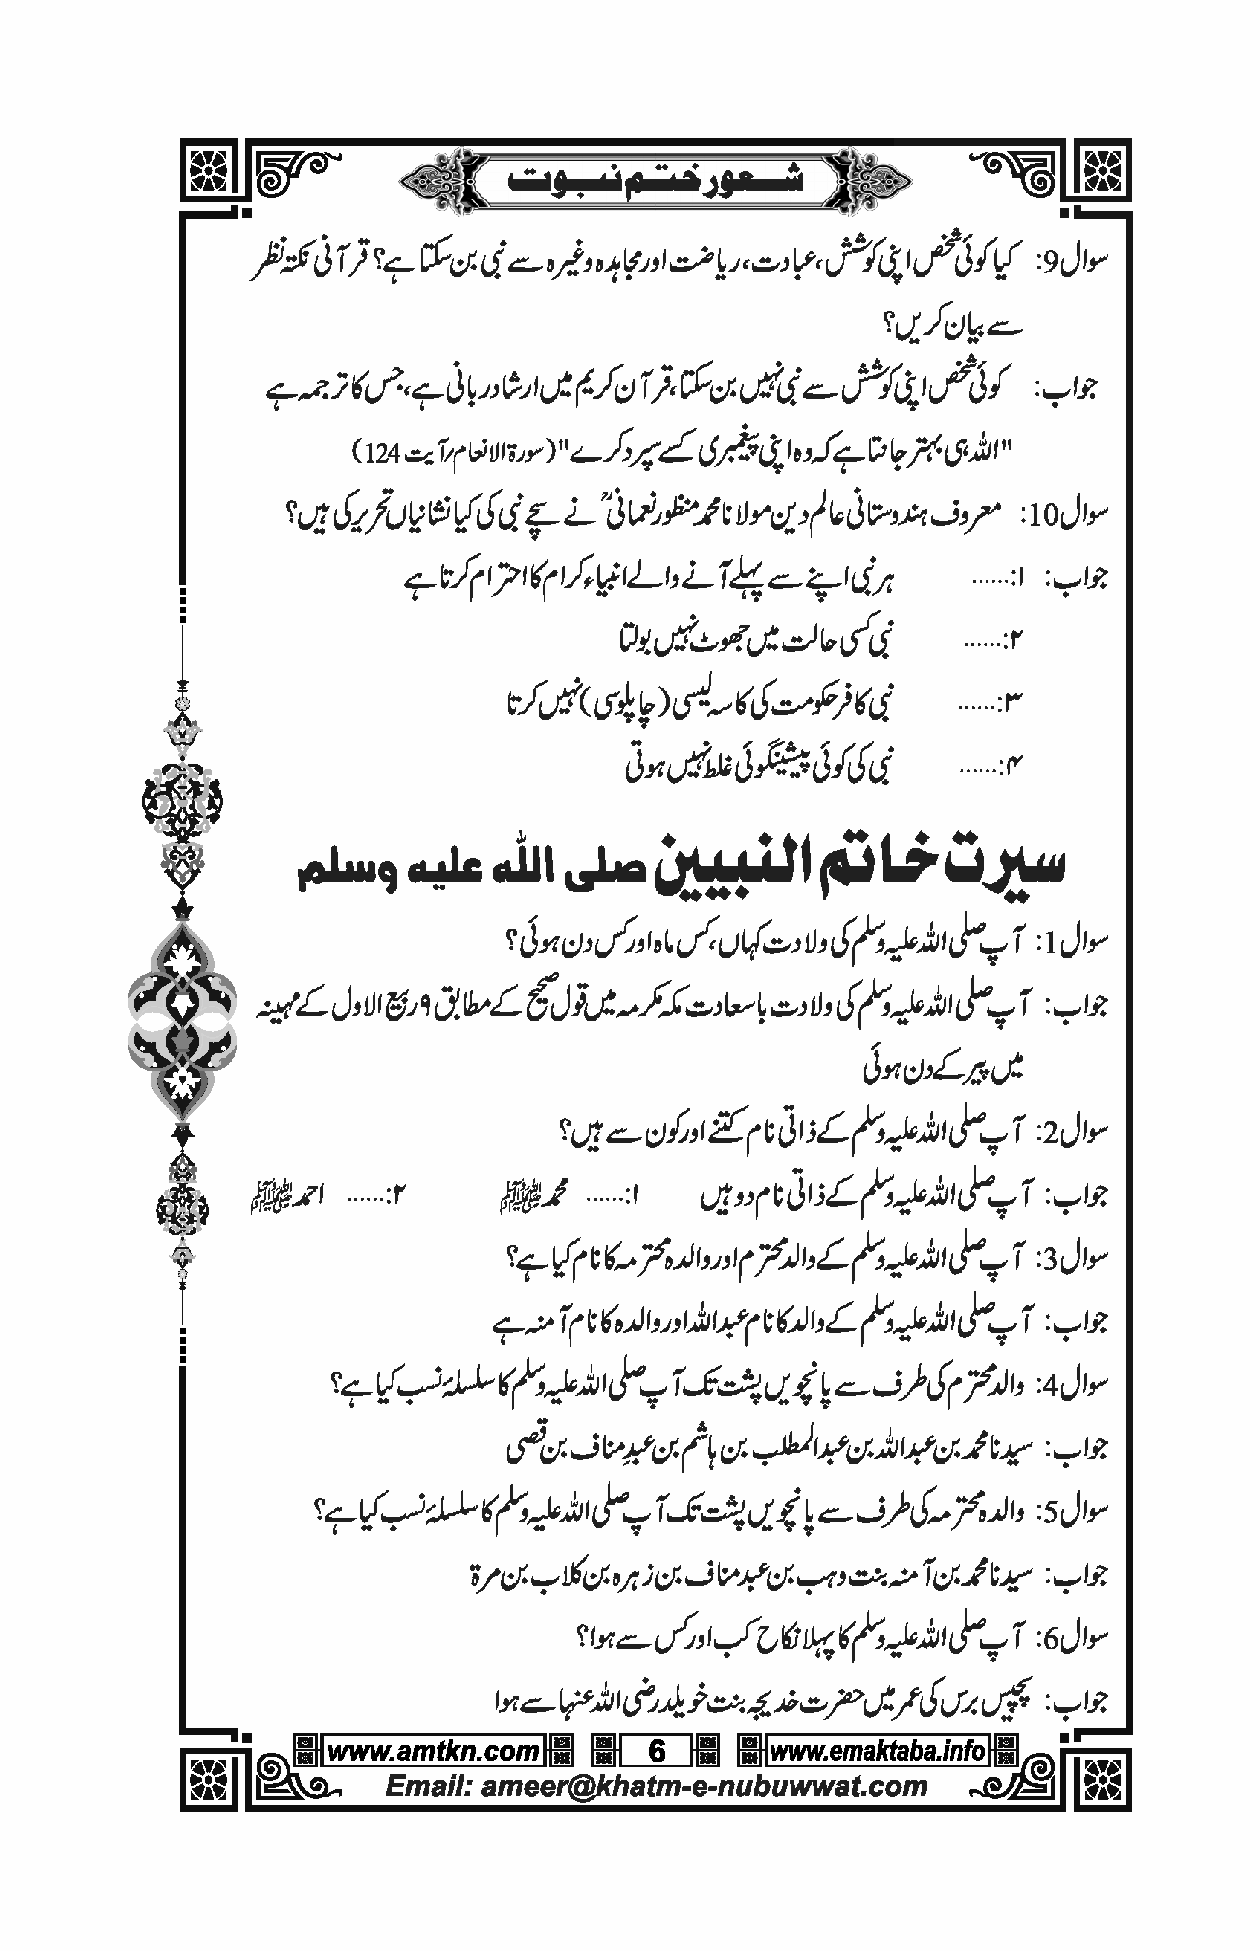 شعور ختم نبوت
سوال9: کیا کوئی شخص اپنی کوشش، عبادت، ریاضت اور مجاہدہ وغیرہ سے نبی بن سکتا ہے؟ قرآنی نکتہ نظر
سے بیان کریں؟
جواب: کوئی شخص اپنی کوشش سے نبی نہیں بن سکتا، قرآن کریم میں ارشاد ربانی ہے، جس کا ترجمہ ہے
"اللہ ہی بہتر جانتا ہے کہ وہ اپنی پیغمبری کسے سپرد کرے" (سورۃ الانعام/آیت 124)
سوال10: معروف ہندوستانی عالم دین مولانا محمد منظور نعمانیؒ نے سچے نبی کی کیا نشانیاں تحریر کی ہیں؟
جواب: ۱:...... ہر نبی اپنے سے پہلے آنے والے انبیاء کرام کا احترام کرتا ہے
۲:...... نبی کسی حالت میں جھوٹ نہیں بولتا
۳:...... نبی کافر حکومت کی کاسہ لیسی (چاپلوسی) نہیں کرتا
۴:...... نبی کی کوئی پیشینگوئی غلط نہیں ہوتی
سیرت خاتم النبیین صلی اللہ علیہ وسلم
سوال1: آپ صلی اللہ علیہ وسلم کی ولادت کہاں، کس ماہ اور کس دن ہوئی؟
جواب: آپ صلی اللہ علیہ وسلم کی ولادت باسعادت مکہ مکرمہ میں قول صحیح کے مطابق ۹ ربیع الاول کے مہینہ
میں پیر کے دن ہوئی
سوال2: آپ صلی اللہ علیہ وسلم کے ذاتی نام کتنے اور کون سے ہیں؟
جواب: آپ صلی اللہ علیہ وسلم کے ذاتی نام دو ہیں ۱:...... محمد ﷺ ۲:...... احمد ﷺ
سوال3: آپ صلی اللہ علیہ وسلم کے والد محترم اور والدہ محترمہ کا نام کیا ہے؟
جواب: آپ صلی اللہ علیہ وسلم کے والد کا نام عبداللہ اور والدہ کا نام آمنہ ہے
سوال4: والد محترم کی طرف سے پانچویں پشت تک آپ صلی اللہ علیہ وسلم کا سلسلۂ نسب کیا ہے؟
جواب: سیدنا محمد بن عبداللہ بن عبدالمطلب بن ہاشم بن عبدِ مناف بن قصی
سوال5: والدہ محترمہ کی طرف سے پانچویں پشت تک آپ صلی اللہ علیہ وسلم کا سلسلۂ نسب کیا ہے؟
جواب: سیدنا محمد بن آمنہ بنت وہب بن عبد مناف بن زہرہ بن کلاب بن مرۃ
سوال6: آپ صلی اللہ علیہ وسلم کا پہلا نکاح کب اور کس سے ہوا؟
جواب: پچیس برس کی عمر میں حضرت خدیجہ بنت خویلد رضی اللہ عنہا سے ہوا
www.amtkn.com 6 www.emaktaba.info
Email: ameer@khatm-e-nubuwwat.com